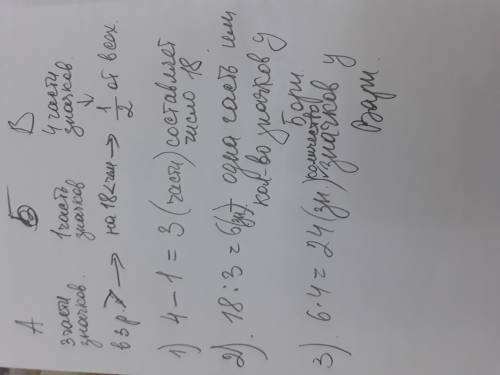 А Б В
3 части 1 часть 4 части
значков. значков значков
в 3 р. > → на 18 < чем → 1/2 от всех.
1) 4 - 1 = 3 (части) составляет
число 18.
2). 18 : 3 = 6 (зн) - одна часть или
кол-во значков у
Бори
3). 6 · 4 = 24 (зн.) количество
значков у
Вари.